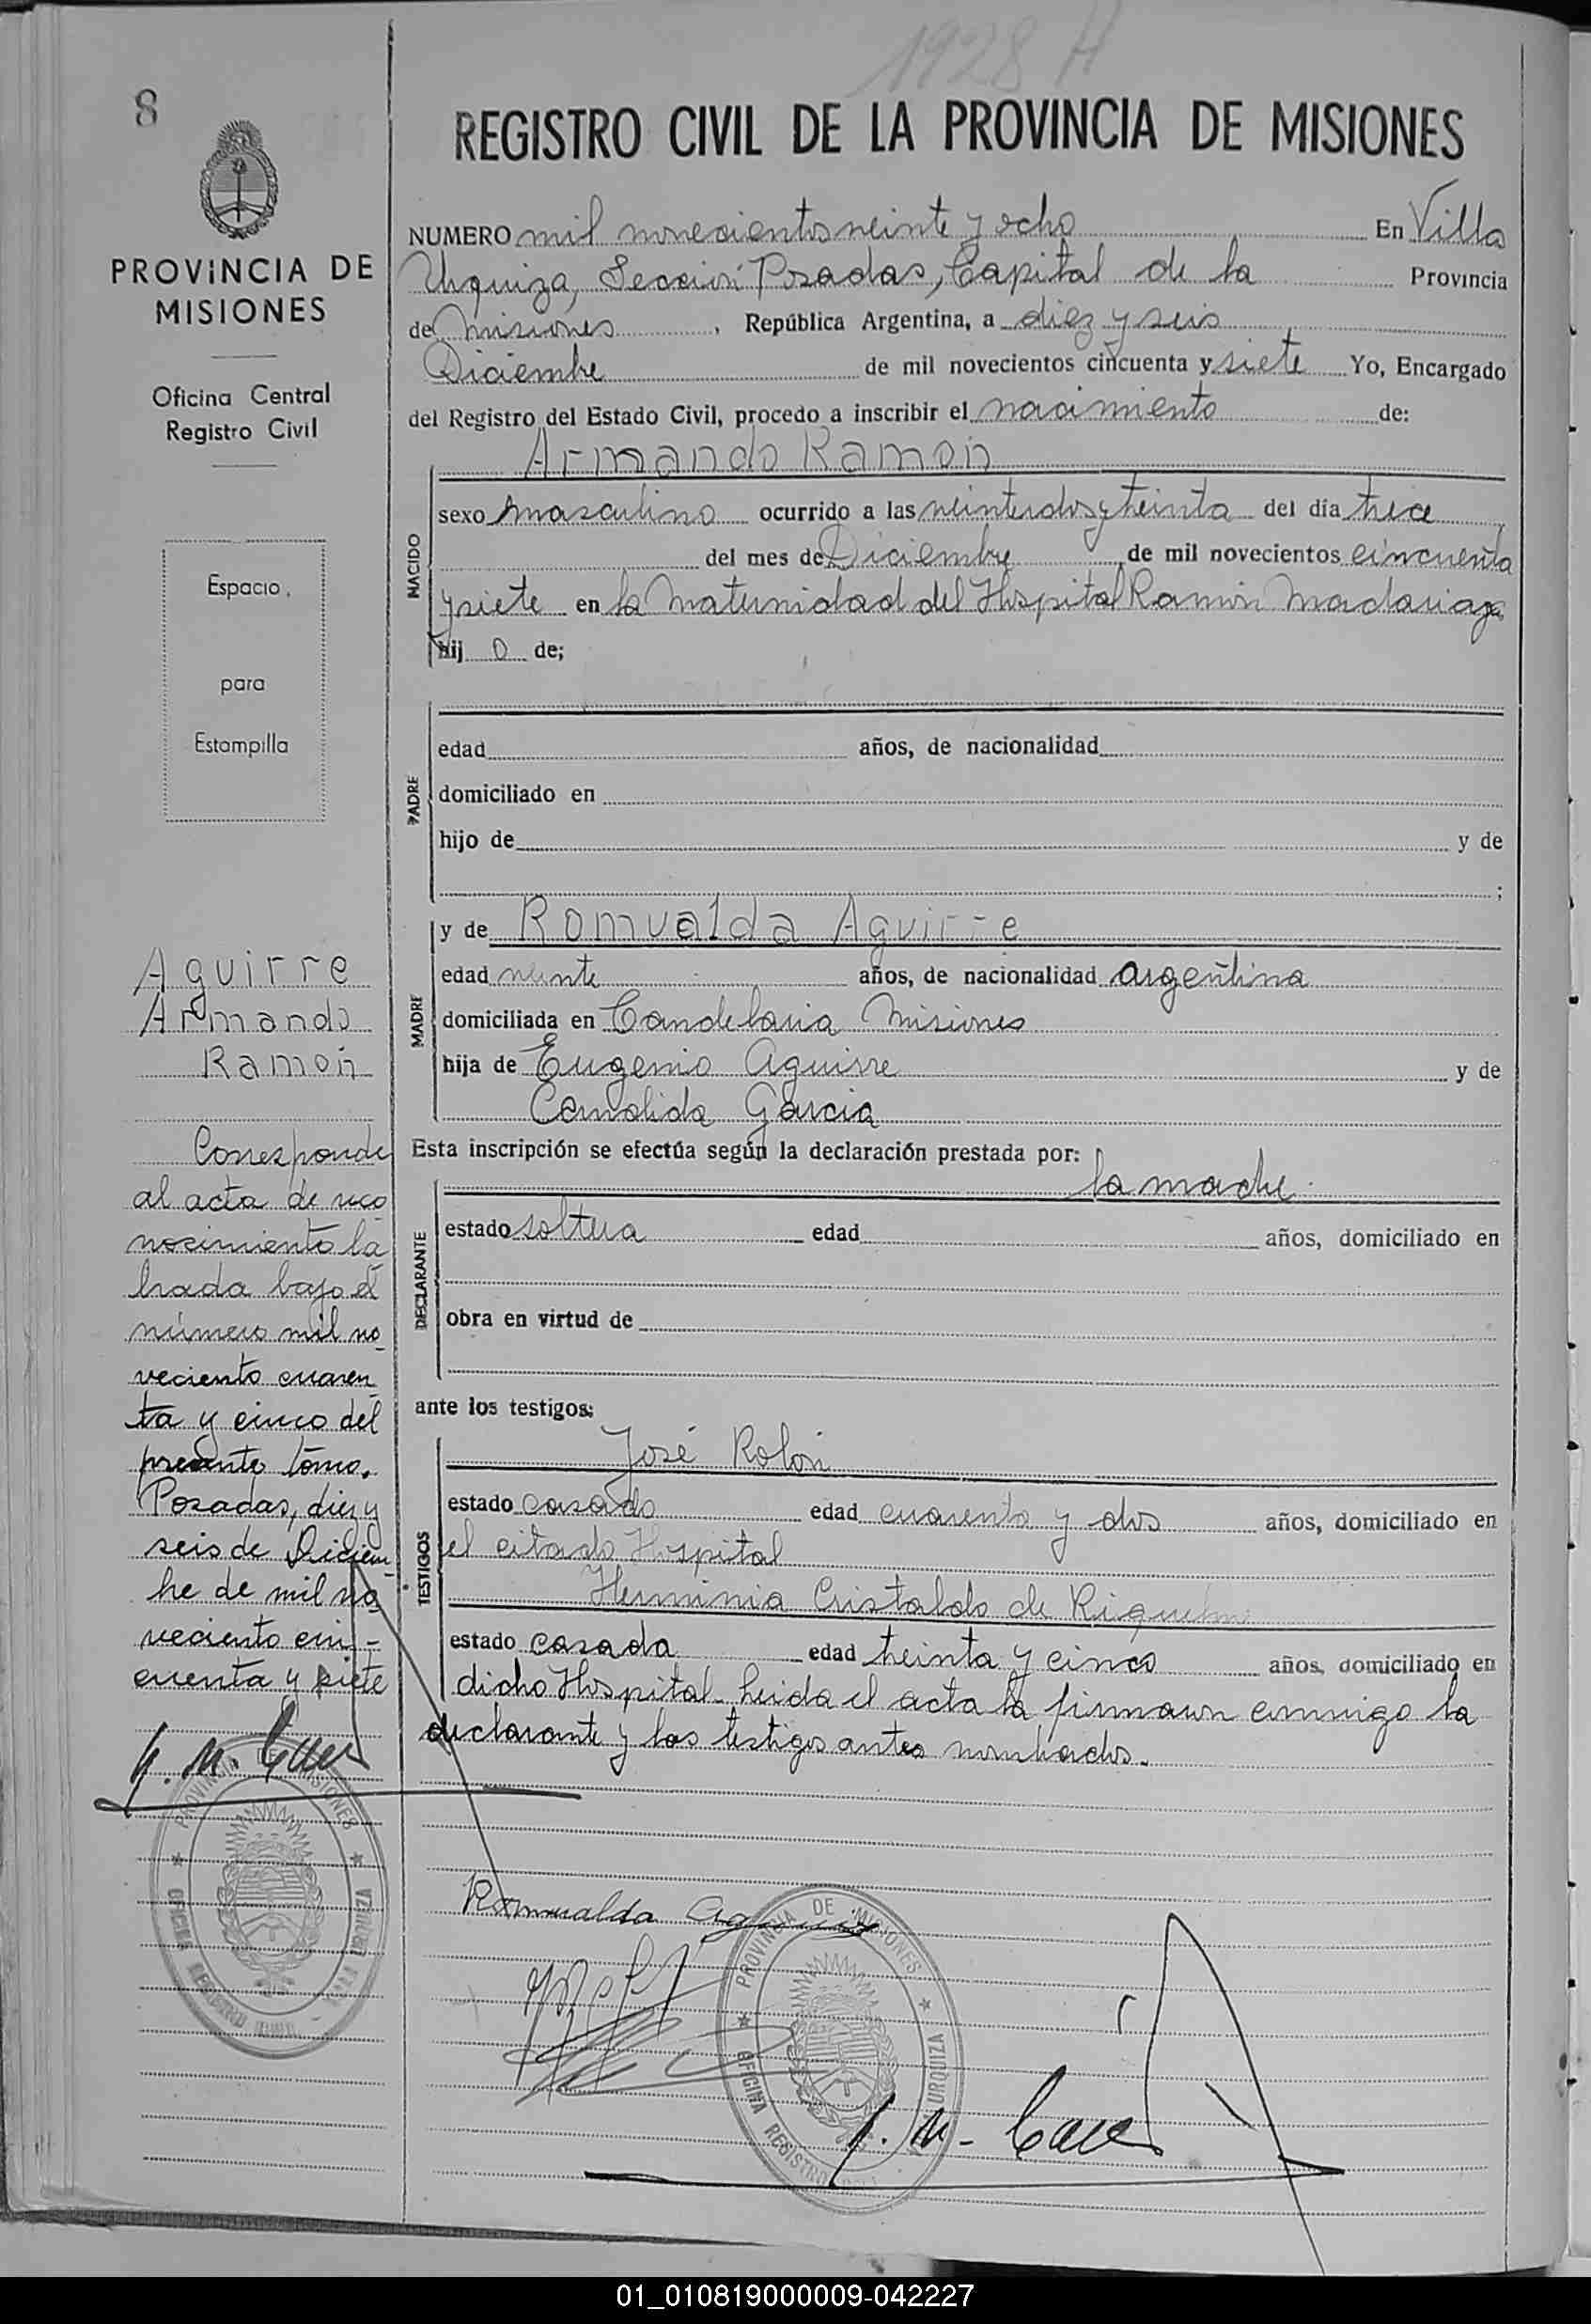 1928 A
8
REGISTRO CIVIL DE LA PROVINCIA DE MISIONES
PROVINCIA DE
MISIONES
Oficina Central
Registro Civil
Espacio
para
Estampilla
NUMERO mil novecientos veinte y ocho En Villa
Urquiza, Sección Posadas, Capital de la Provincia
de Misiones, República Argentina, a diez y seis
Diciembre de mil novecientos cincuenta y siete Yo, Encargado
del Registro del Estado Civil, procedo a inscribir el nacimiento de:
Armando Ramón
NACIDO
sexo masculino ocurrido a las veintidos y treinta del día trece
del mes de Diciembre de mil novecientos cincuenta
y siete en la Maternidad del Hospital Ramón Madariaga
hij o de;
PADRE
edad años, de nacionalidad
domiciliado en
hijo de y de
;
MADRE
y de Romualda Aguirre
edad veinte años, de nacionalidad argentina
domiciliada en Candelaria Misiones
hija de Eugenio Aguirre y de
García
Esta inscripción se efectúa según la declaración prestada por:
la madre
DECLARANTE
estado soltera edad años, domiciliado en
obra en virtud de
ante los testigos:
TESTIGOS
José Rolón
estado casado edad cuarenta y dos años, domiciliado en
el citado Hospital
Herminia Cristaldo de
estado casada edad treinta y cinco años, domiciliado en
dicho Hospital. Leida el acta la firmaron conmigo la
declarante y los testigos antes nombrados.
Aguirre
Armando
Ramón
Corresponde
al acta de reco
nocimiento la
brada bajo el
número mil no
veciento cuaren
ta y cinco del
presente tomo.
Posadas, diez y
seis de Diciem
bre de mil no
veciento cin-
cuenta y siete
PROVINCIA DE MISIONES
OFICINA REGISTRO CIVIL
VILLA URQUIZA
Romualda Aguirre
PROVINCIA DE MISIONES
OFICINA REGISTRO CIVIL
URQUIZA
01_010819000009-042227